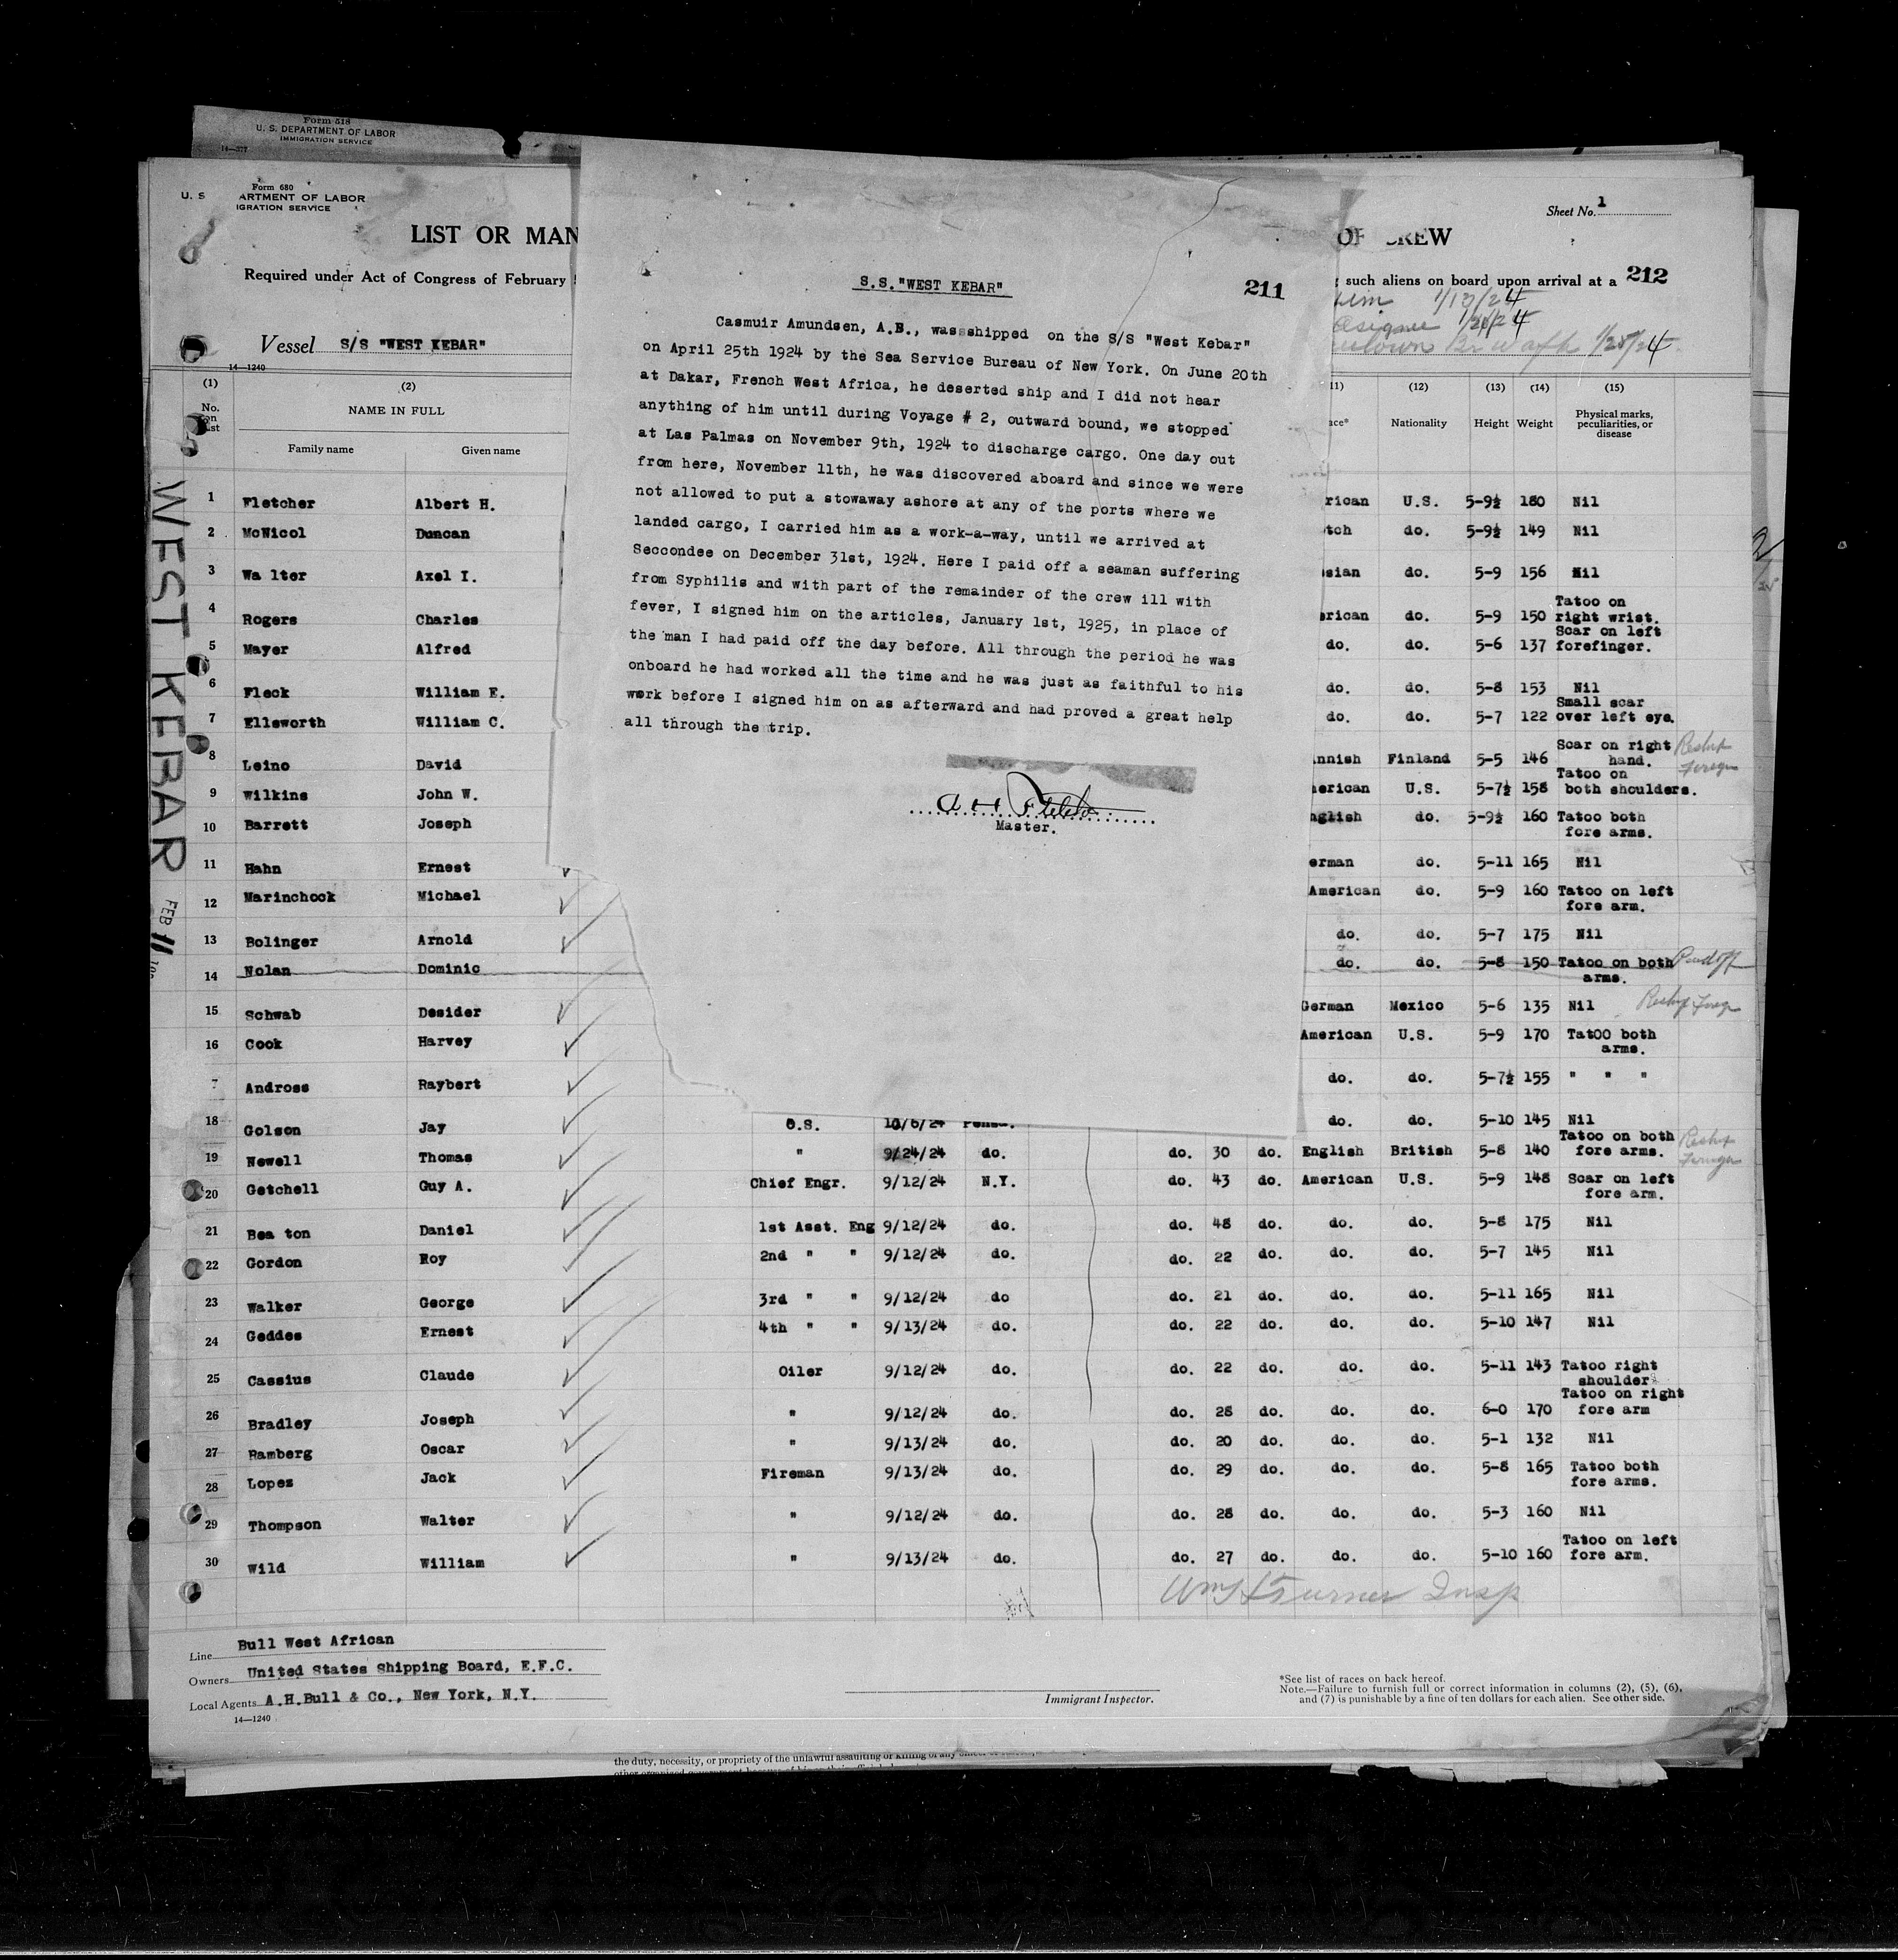 Form 518
U. S. DEPARTMENT OF LABOR
IMMIGRATION SERVICE
14—577
Form 680
U. S ARTMENT OF LABOR
IGRATION SERVICE
Sheet No. 1
LIST OR MAN
OF CREW
Required under Act of Congress of February
such aliens on board upon arrival at a 212
1/13/24
1/20/24
1/25/24
Vessel S/S "WEST KEBAR"
14—1240
S.S."WEST KEBAR"
211
Casmuir Amundsen, A.B., wassshipped on the S/S "West Kebar"
on April 25th 1924 by the Sea Service Bureau of New York. On June 20th
at Dakar, French West Africa, he deserted ship and I did not hear
anything of him until during Voyage # 2, outward bound, we stopped
at Las Palmas on November 9th, 1924 to discharge cargo. One day out
from here, November 11th, he was discovered aboard and since we were
not allowed to put a stowaway ashore at any of the ports where we
landed cargo, I carried him as a work-a-way, until we arrived at
Seccondee on December 31st, 1924. Here I paid off a seaman suffering
from Syphilis and with part of the remainder of the crew ill with
fever, I signed him on the articles, January 1st, 1925, in place of
the man I had paid off the day before. All through the period he was
onboard he had worked all the time and he was just as faithful to his
work before I signed him on as afterward and had proved a great help
all through the trip.
Master.
(1) (2) 11) (12) (13) (14) (15)
No. on list NAME IN FULL ace* Nationality Height Weight Physical marks, peculiarities, or disease
Family name Given name
WEST KEBAR
FEB 11
1 Fletcher Albert H. rican U.S. 5-9½ 180 Nil
2 McNicol Duncan tch do. 5-9½ 149 Nil
3 Wa lter Axel I. sian do. 5-9 156 Nil
4 Rogers Charles erican do. 5-9 150 Tatoo on right wrist.
5 Mayer Alfred do. do. 5-6 137 Scar on left forefinger.
6 Fleck William E. do. do. 5-8 153 Nil
7 Ellsworth William C. do. do. 5-7 122 Small scar over left eye.
8 Leino David nnish Finland 5-5 146 Scar on right hand. Reship Foreign
9 Wilkins John W. erican U.S. 5-7½ 158 Tatoo on both shoulders.
10 Barrett Joseph nglish do. 5-9½ 160 Tatoo both fore arms.
11 Hahn Ernest erman do. 5-11 165 Nil
12 Marinchock Michael American do. 5-9 160 Tatoo on left fore arm.
13 Bolinger Arnold do. do. 5-7 175 Nil
14 Nolan Dominic do. do. 5-8 150 Tatoo on both arms. Paid off
15 Schwab Desider German Mexico 5-6 135 Nil Reship Foreign
16 Cook Harvey American U.S. 5-9 170 TatOO both arms.
7 Andross Raybert do. do. 5-7½ 155 " " "
18 Golson Jay O.S. 10/6/24 do. do. 5-10 145 Nil
19 Newell Thomas " 9/24/24 do. do. 30 do. English British 5-8 140 Tatoo on both fore arms. Reship Foreign
20 Getchell Guy A. Chief Engr. 9/12/24 N.Y. do. 43 do. American U.S. 5-9 148 Scar on left fore arm.
21 Bea ton Daniel 1st Asst. Eng 9/12/24 do. do. 48 do. do. do. 5-8 175 Nil
22 Gordon Roy 2nd " " 9/12/24 do. do. 22 do. do. do. 5-7 145 Nil
23 Walker George 3rd " " 9/12/24 do do. 21 do. do. do. 5-11 165 Nil
24 Geddes Ernest 4th " " 9/13/24 do. do. 22 do. do. do. 5-10 147 Nil
25 Cassius Claude Oiler 9/12/24 do. do. 22 do. do. do. 5-11 143 Tatoo right shoulder
26 Bradley Joseph " 9/12/24 do. do. 28 do. do. do. 6-0 170 Tatoo on right fore arm
27 Bamberg Oscar " 9/13/24 do. do. 20 do. do. do. 5-1 132 Nil
28 Lopez Jack Fireman 9/13/24 do. do. 29 do. do. do. 5-8 165 Tatoo both fore arms.
29 Thompson Walter " 9/12/24 do. do. 28 do. do. do. 5-3 160 Nil
30 Wild William " 9/13/24 do. do. 27 do. do. do. 5-10 160 Tatoo on left fore arm.
Turner Insp
Line Bull West African
Owners United States Shipping Board, E.F.C.
Local Agents A.H.Bull & Co., New York, N.Y.
14—1240
Immigrant Inspector.
*See list of races on back hereof.
Note.—Failure to furnish full or correct information in columns (2), (5), (6),
and (7) is punishable by a fine of ten dollars for each alien. See other side.
the duty, necessity, or propriety of the unlawful assaulting or killing of any